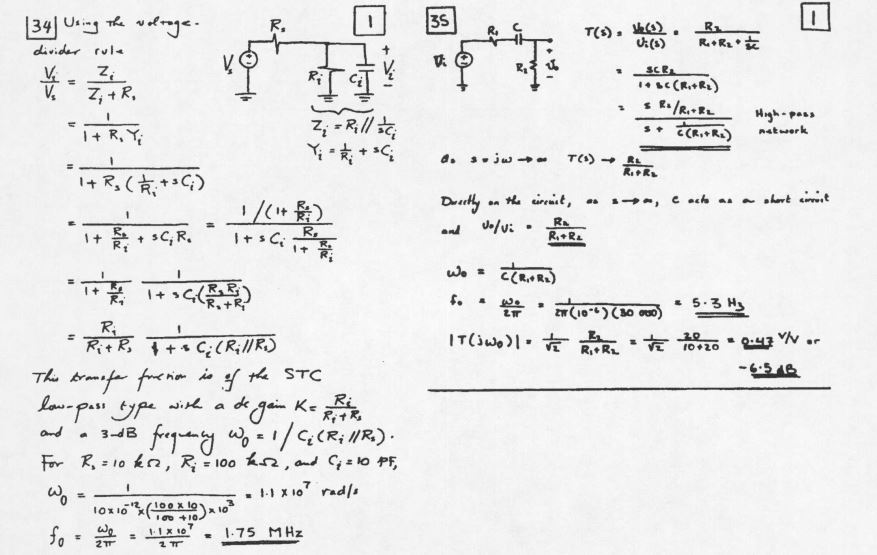 34 Using the voltage-
divider rule
V_i/V_s = Z_i/(Z_i + R_s)
= 1/(1 + R_s Y_i)
= 1/(1 + R_s (1/R_i + sC_i))
= 1/(1 + R_s/R_i + sC_i R_s) = (1/(1 + R_s/R_i))/(1 + sC_i R_s/(1 + R_s/R_i))
= 1/(1 + R_s/R_i) 1/(1 + sC_i (R_s R_i/(R_s + R_i)))
= R_i/(R_i + R_s) 1/(1 + s C_i (R_i // R_s))
This transfer function is of the STC
low-pass type with a dc gain K = R_i/(R_i + R_s)
and a 3-dB frequency ω_0 = 1/C_i (R_i // R_s).
For R_s = 10 kΩ, R_i = 100 kΩ, and C_i = 10 pF,
ω_0 = 1/(10x10^-12 x (100 x 10/(100 + 10)) x10^3) = 1.1 x 10^7 rad/s
f_0 = ω_0/2π = 1.1 x 10^7/2π = 1.75 MHz
1
R_s
V_s
R_i C_i
+
V_i
-
Z_i = R_i // 1/sC_i
Y_i = 1/R_i + sC_i
35
1
R_1 C
V_i
R_2
+
V_o
-
T(s) = V_o(s)/V_i(s) = R_2/(R_1+R_2 + 1/sC)
= sCR_2/(1 + sC(R_1+R_2))
= (s R_2/R_1+R_2)/(s + 1/C(R_1+R_2)) High-pass
network
As s = jω → ∞ T(s) → R_2/(R_1+R_2)
Directly on the circuit, as s → ∞, C acts as a short circuit
and V_o/V_i = R_2/(R_1+R_2)
ω_0 = 1/C(R_1+R_2)
f_0 = ω_0/2π = 1/(2π(10^-6)(30 000)) = 5.3 Hz
|T(jω_0)| = 1/√2 R_2/(R_1+R_2) = 1/√2 20/(10+20) = 0.47 V/V or
-6.5 dB